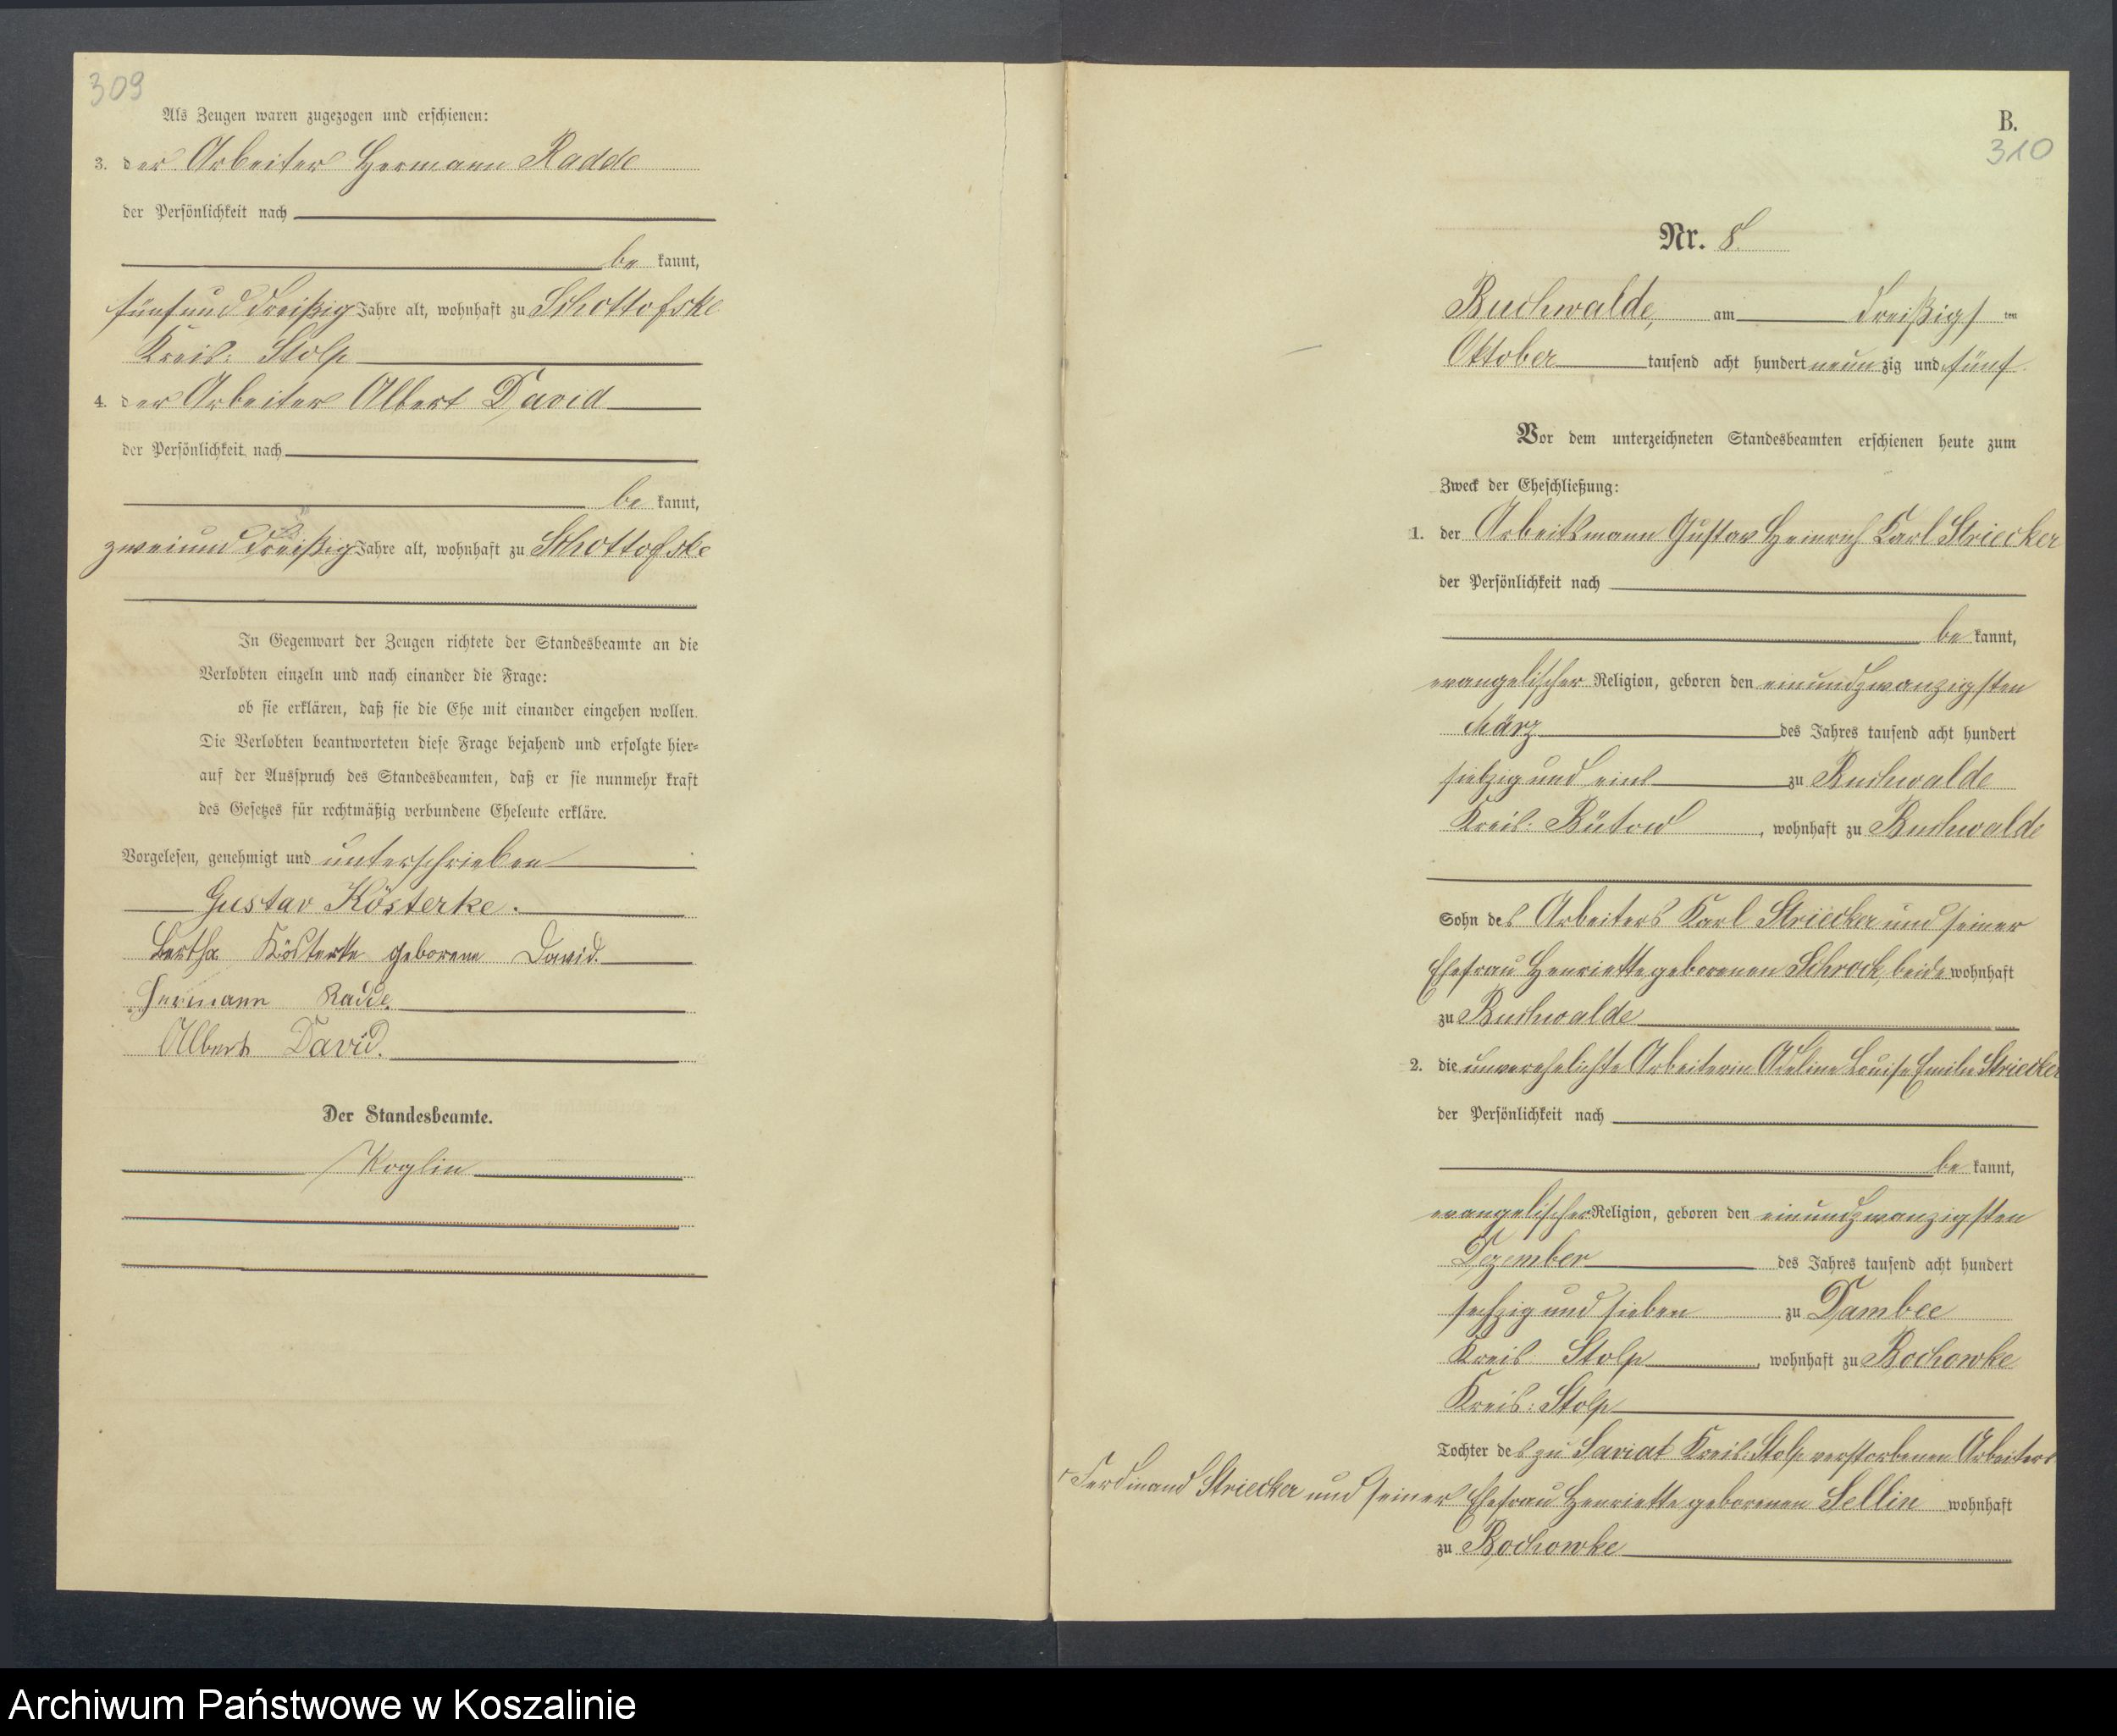 309
Als Zeugen waren zugezogen und erschienen:
3. der Arbeiter Hermann Radde
der Persönlichkeit nach
be kannt,
fünfund dreißig Jahre alt, wohnhaft zu Schottofske
Kreis: Stolp
4. der Arbeiter Albert David
der Persönlichkeit nach
be kannt,
zweiund dreißig Jahre alt, wohnhaft zu Schottofske
In Gegenwart der Zeugen richtete der Standesbeamte an die
Verlobten einzeln und nach einander die Frage:
ob sie erklären, daß sie die Ehe mit einander eingehen wollen.
Die Verlobten beantworteten diese Frage bejahend und erfolgte hier=
auf der Ausspruch des Standesbeamten, daß er sie nunmehr kraft
des Gesetzes für rechtmäßig verbundene Eheleute erkläre.
Vorgelesen, genehmigt und unterschrieben
Gustav Kösterke.
Bertha Kösterke geborene David.
Hermann Radde.
Albert David.
Der Standesbeamte.
Koglin
B.
310
Nr. 8
Buchwalde, am dreißigs ten
Oktober tausend acht hundert neun zig und fünf
Vor dem unterzeichneten Standesbeamten erschienen heute zum
Zweck der Eheschließung:
1. der Arbeitsmann Gustav Heinrich Karl Striecker
der Persönlichkeit nach
be kannt,
evangelischer Religion, geboren den einundzwanzigsten
März des Jahres tausend acht hundert
siebzig und eins zu Buchwalde
Kreis: Bütow, wohnhaft zu Buchwalde
Sohn des Arbeiters Karl Striecker und seiner
Ehefrau Henriette geborenen Schrock, beide wohnhaft
zu Buchwalde
2. die unverehelichte Arbeiterin Adeline Louise Emilie Striecker
der Persönlichkeit nach
be kannt,
evangelischer Religion, geboren den einundzwanzigsten
Dezember des Jahres tausend acht hundert
sechzig und sieben zu Dambee
Kreis Stolp, wohnhaft zu Rochowke
Kreis: Stolp
Tochter des zu Saviat Kreis: Stolp verstorbenen Arbeiters
Ferdinand Striecker und seiner Ehefrau Henriette geborenen Sellin wohnhaft
zu Rochowke
Archiwum Państwowe w Koszalinie